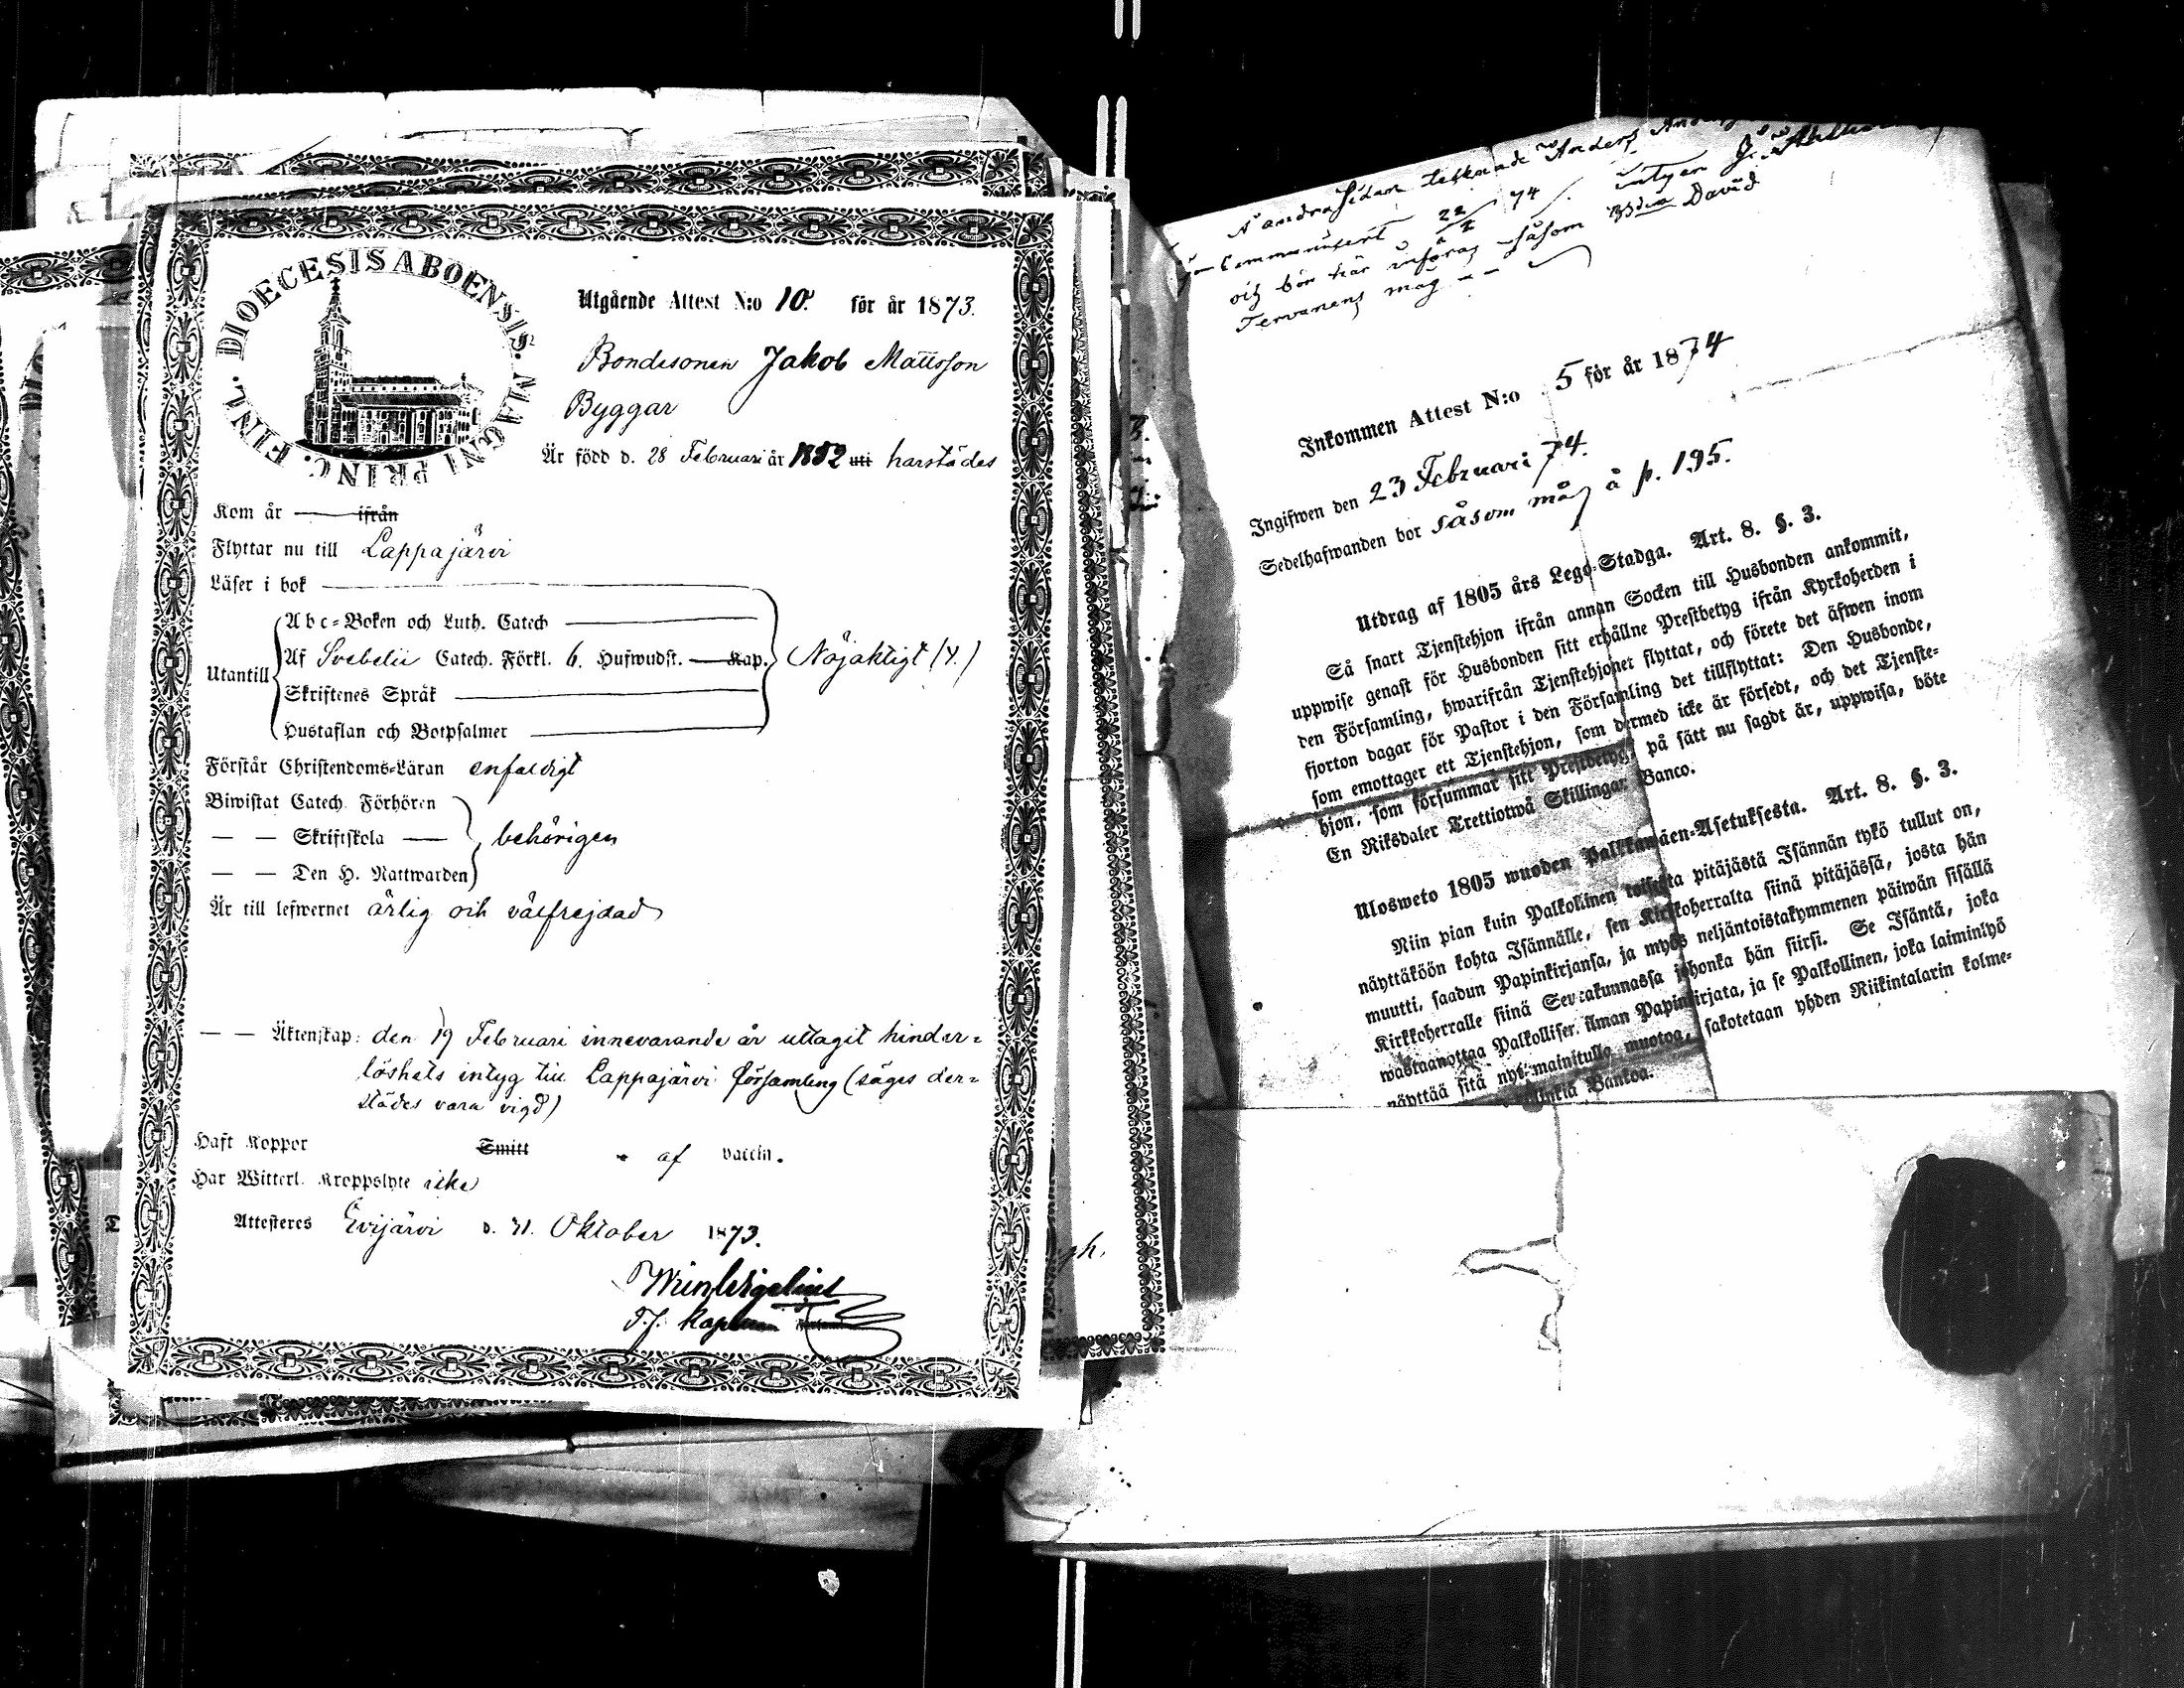 DIOECESIS ABOENSIS. MAGNI PRINC. FINL.
Utgående Attest N:o 10. för år 1873.
Bondesonen Jakob Mattsson
Byggar
Är född d. 28 Februari år 1852 uti härstädes
Kom år — ifrån
Flyttar nu till Lappajärvi
Läser i bok
Abc-Boken och Luth. Catech
Utantill
Af Svebelii Catech. Förkl. 6. Hufwudst. — Kap.
Nöjaktigt (4.)
Skriftenes Språk
Hustaflan och Botpsalmer
Förstår Christendoms-Läran enfaldigt
Biwistat Catech. Förhören
— — Skriftskola —
behörigen
— — Den H. Nattwarden
Är till lefwernet ärlig och välfrejdad
— — Äktenskap: den 19 Februari innevarande år uttagit hinder=
löshets intyg till Lappajärvi församling (säges der=
städes vara vigd)
Haft Koppor Smitt af vaccin.
Har Witterl. Kroppslyte icke
Attesteres Evijärvi d. 31. Oktober 1873.
T.f. Kaplan
Å andra sidan tecknade Anders
intyga
communicerit 22/2 74
och bör här införas såsom David
Tervanens måg
Inkommen Attest N:o 5 för år 1874
Ingifwen den 23 Februari 74.
Sedelhafwanden bor såsom måg å p. 195.
Utdrag af 1805 års Lego-Stadga. Art. 8. §. 3.
Så snart Tjenstehjon ifrån annan Socken till Husbonden ankommit,
uppwise genast för Husbonden sitt erhållne Prestbetyg ifrån Kyrkoherden i
den Församling, hwarifrån Tjenstehjonet flyttat, och förete det äfwen inom
fjorton dagar för Pastor i den Församling det tillflyttat: Den Husbonde,
som emottager ett Tjenstehjon, som dermed icke är försedt, och det Tjenste-
hjon, som försummar sitt Prestbetyg, på sätt nu sagdt är, uppwisa, böte
En Riksdaler Trettiotwå Skillingar Banco.
Ulosweto 1805 wuoden Palkkawäen-Asetuksesta. Art. 8. §. 3.
Niin pian kuin Palkollinen toisesta pitäjästä Isännän tykö tullut on,
näyttäköön kohta Isännälle, sen Kirkkoherralta siinä pitäjässä, josta hän
muutti, saadun Papinkirjansa, ja myös neljäntoistakymmenen päiwän sisällä
Kirkkoherralle siinä Seurakunnassa johonka hän siirsi. Se Isäntä, joka
wastaanottaa Palkollisen, ilman Papinkirjata, ja se Palkollinen, joka laiminlyö
näyttää sitä nyt mainitulla muotoa, sakotetaan yhden Riikintalarin kolme-
Bankoa.